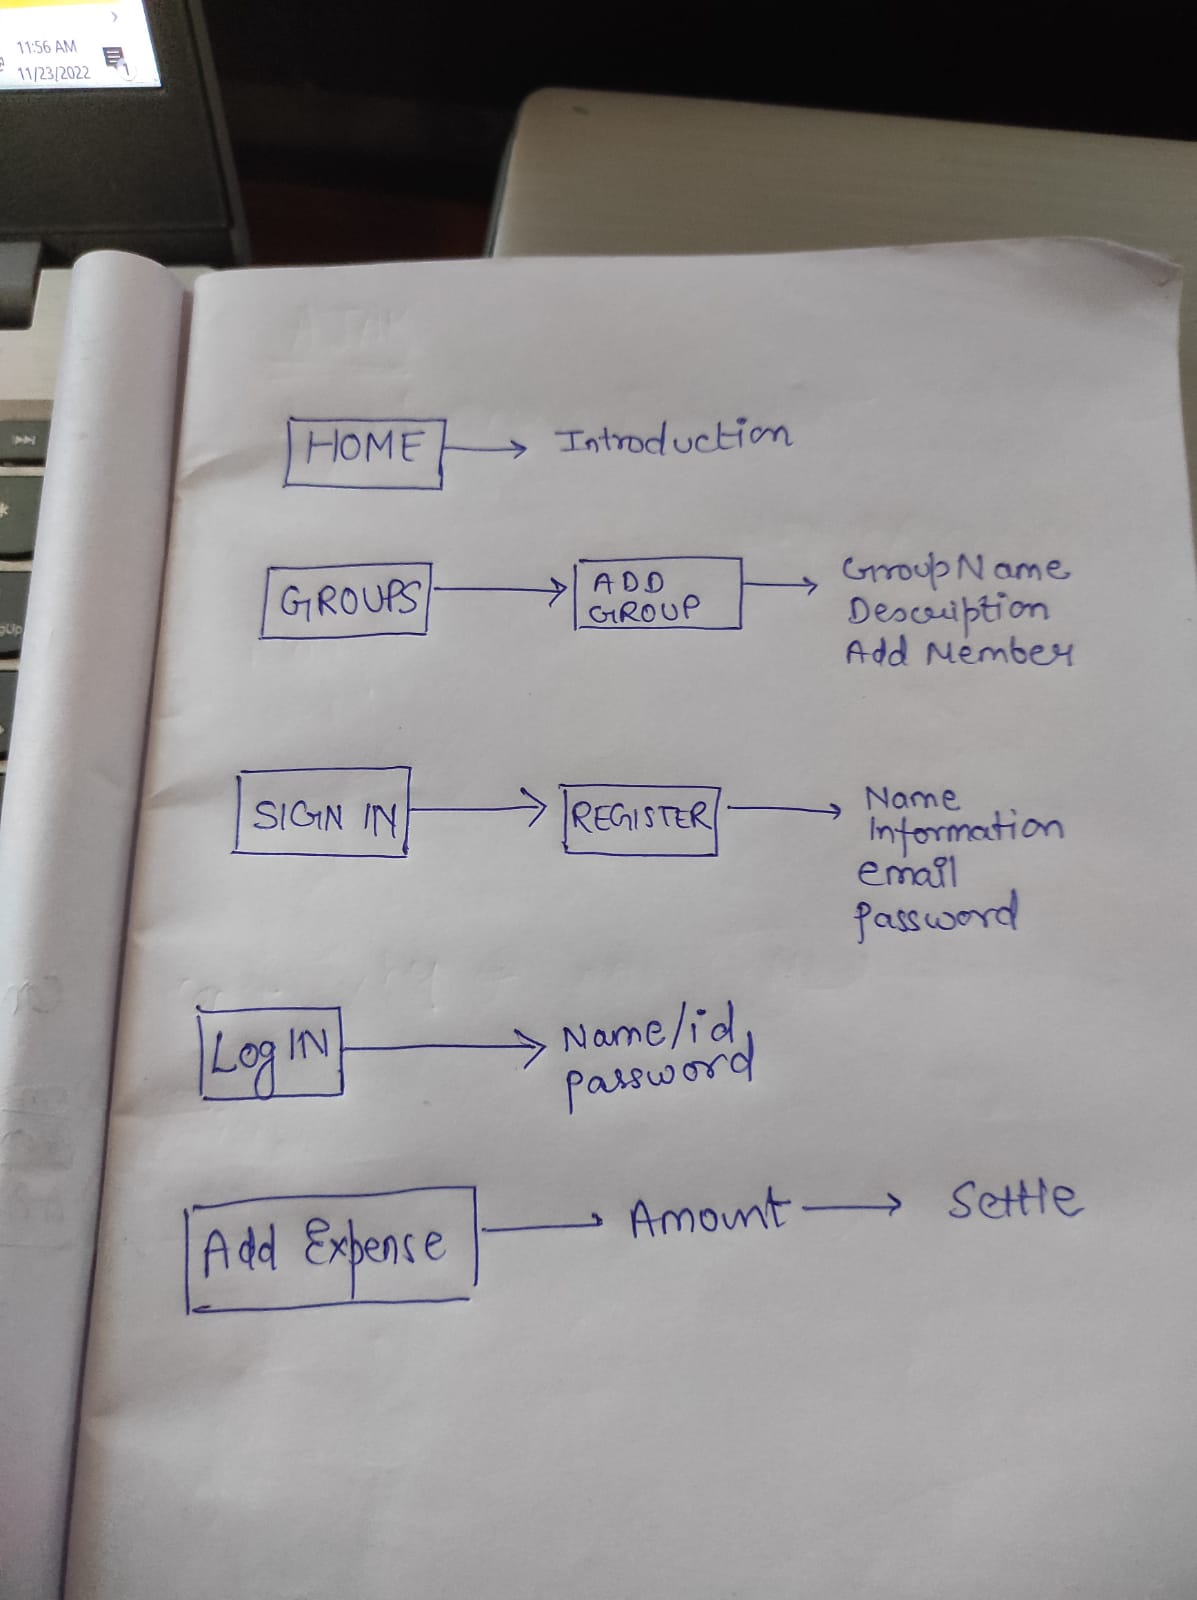 11:56 AM
11/23/2022
1
HOME
Introduction
GROUPS
ADD
GROUP
Group Name
Description
Add Member
SIGN IN
REGISTER
Name
Information
email
password
Log IN
Name/id,
password
Add Expense
Amount
Settle